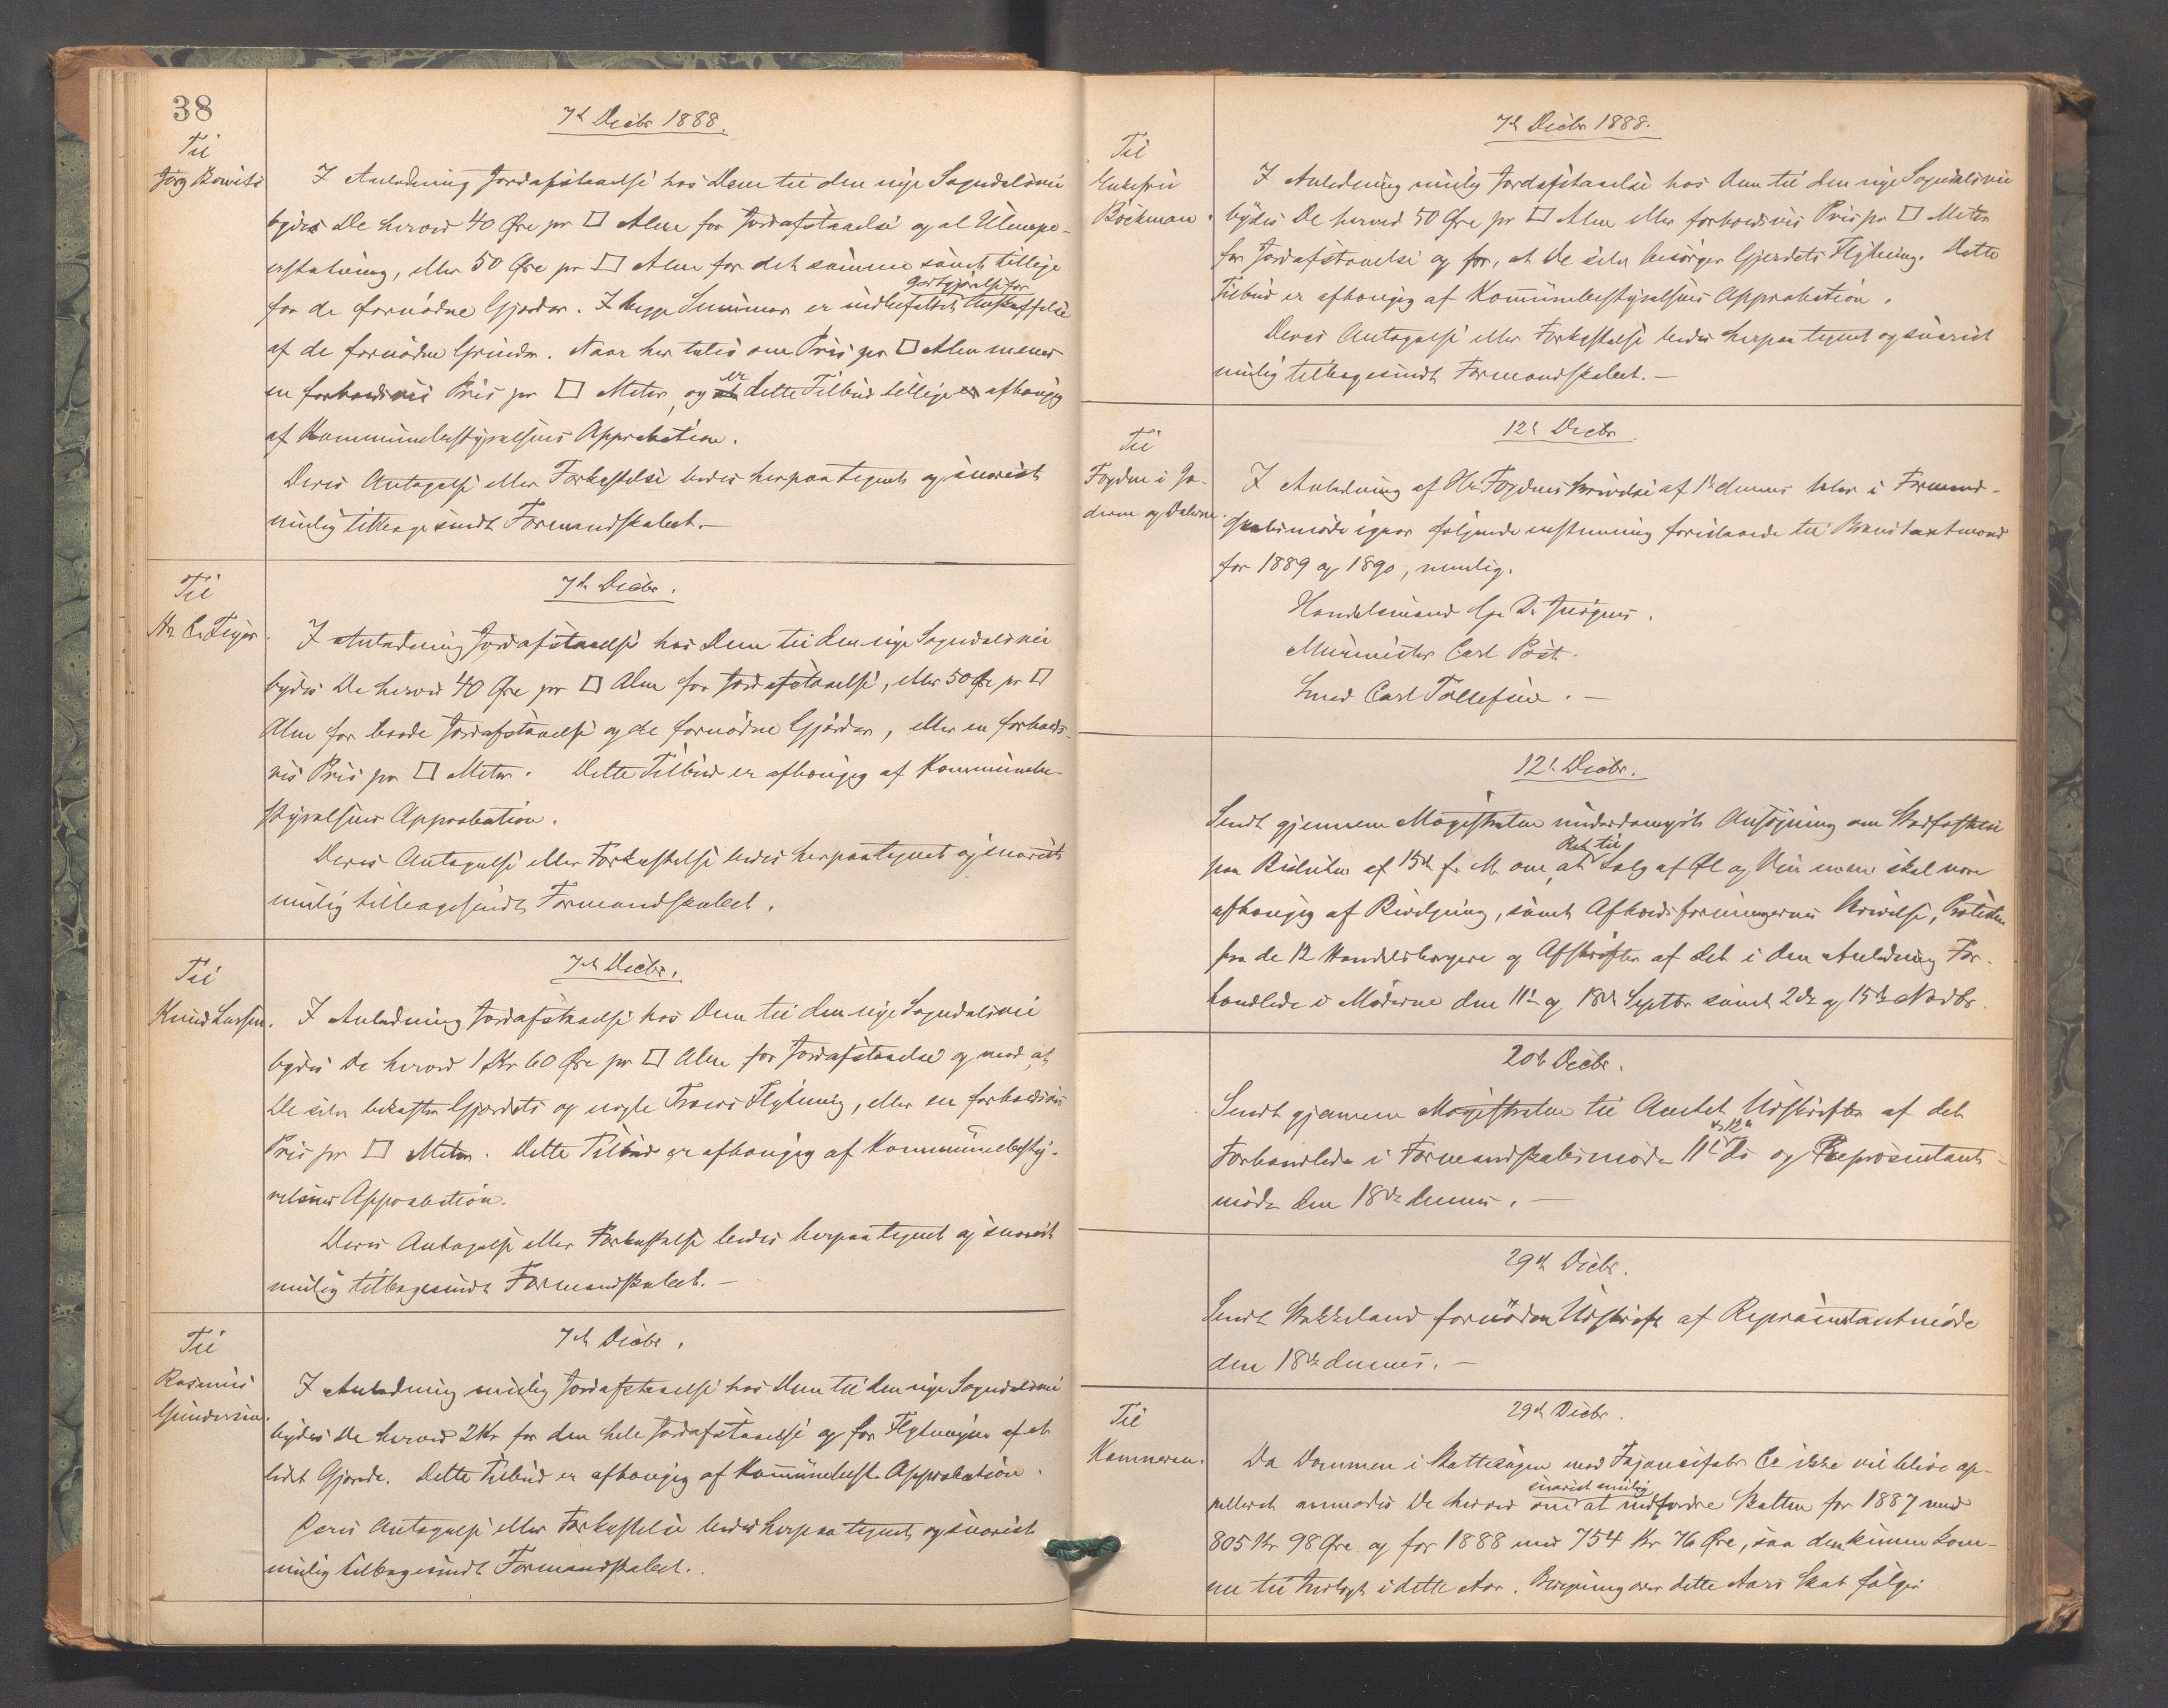 38
7de Decbr 1888.
Til
Jörg Bowitz
I Anledning Jordafstaaelse hos Dem til den nye Sogndalsvei
bydes De herved 40 Øre pr □ Alen for Jordafstaaelse og al Ulempe-
erstatning, eller 50 Øre pr □ Alen for det samme samt tillige
godtgjørelse for
for de fornødne Gjærder. I begge Summer er indbefattet Anskaffelse
af de fornødne Grinder. Naar her tales om Pris pr □ Alen menes
er
en forholdsvis Pris pr □ Meter, og at dette Tilbud tillige er afhængig
af Kommunebestyrelsens Approbation.
Deres Antagelse eller Forkastelse bedes herpaategnet og snarest
mulig tilbagesendt Formandskabet.—
7de Decbr.
Til
Hr C. Feyer.
I Anledning Jordafstaaelse hos Dem til den nye Sogndalsvei
bydes De herved 40 Øre pr □ Alen for Jordafstaaelse, eller 50 Øre pr □
Alen for baade Jordafstaaelse og de fornødne Gjærder, eller en forholds-
vis Pris pr □ Meter. Dette Tilbud er afhængig af Kommunebe-
styrelsens Approbation.
Deres Antagelse eller Forkastelse bedes herpaategnet og snarest
mulig tilbagesendt Formandskabet.
7de Decbr.
Til
Knud Larsen.
I Anledning Jordafstaaelse hos Dem til den nye Sogndalsvei
bydes De herved 1 Kr 60 Øre pr □ Alen for Jordafstaaelse og mod, at
De selv bekoster Gjærdets og nogle Træers Flytning, eller en forholdsvis
Pris pr □ Meter. Dette Tilbud er afhængig af Kommunebesty-
relsens Approbation.
Deres Antagelse eller Forkastelse bedes herpaategnet og snarest
mulig tilbagesendt Formandskabet.—
7de Decbr.
Til
Rasmus
Gundersen.
I Anledning mulig Jordafstaaelse hos Dem til den nye Sogndalsvei
bydes De herved 2 Kr for den hele Jordafstaaelse og for Flytningen af et
lidet Gjærde. Dette Tilbud er afhængig af Kommunebest. Approbation.
Deres Antagelse eller Forkastelse bedes herpaategnet og snarest
mulig tilbagesendt Formandskabet.
7de Decbr 1888.
Til
Enkefru
Böckman.
I Anledning mulig Jordafstaaelse hos Dem til den nye Sogndalsvei
bydes De herved 50 Øre pr □ Alen eller forholdsvis Pris pr □ Meter
for Jordafstaaelse og for, at De selv besørger Gjerdets Flytning. Dette
Tilbud er afhængig af Kommunebestyrelsens Approbation.
Deres Antagelse eller Forkastelse bedes herpaategnet og snarest
mulig tilbagesendt Formandskabet.—
12te Decbr.
Til
Fogden i Jæ-
deren og Dalerne.
I Anledning af Hr Fogdens Skrivelse af 1ste dennes blev i Formand-
skabsmøde igaar følgende enstemmig foreslaaede til Brandtaxtmænd
for 1889 og 1890, nemlig.
Handelsmand
Murmester Carl Post.
Smed Carl Tollefsen.—
12te Decbr.
Sendt gjennem Magistraten underdanigst Ansøgning om Stadfæstelse
Ret til
paa Beslutn af 15de f. M. om, at Salg af Øl og Vin m.m. skal være
afhængig af Bevilgning, samt Afholdsforeningernes Skrivelse, Protesten
fra de 12 Handelsborgere og Afskrifter af det i den Anledning For-
handlede i Møderne den 11te og 18de Septbr samt 2de og 15de Novbr.
20de Decbr.
Sendt gjennem Magistraten til Amtet Udskrifter af det
og 12te
Forhandlede i Formandskabsmøde 11te ds og Repræsentant-
møde den 18de dennes.—
29de Decbr.
Sendt Stokkeland fornøden Udskrift af Repræsentantmøde
den 18de dennes.—
29de Decbr.
Til
Kæmneren.
Da Dommen i Skattesagen mod Fajancefabr Co ikke vil blive ap-
snarest mulig
pelleret anmodes De herved om at indfordre Skatten for 1887 med
805 Kr 98 Øre og for 1888 med 754 Kr 76 Øre, saa den kunne kom-
me til Indtægt i dette Aar. Beregning over dette Aars Skat følger